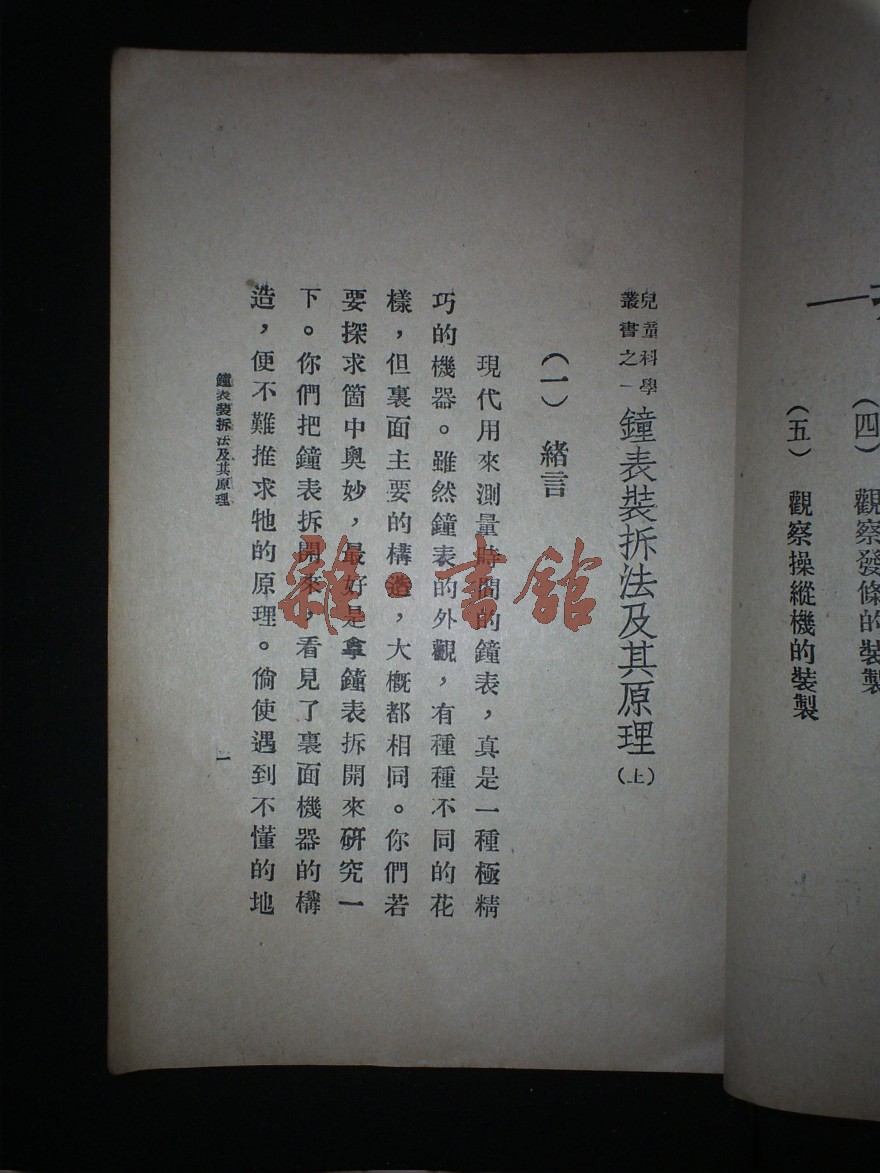 (四) 觀察發條的裝製
(五) 觀察操縱機的裝製
兒童科學
叢書之一
鐘表裝拆法及其原理(上)
(一) 緒言
現代用來測量時間的鐘表，真是一種極精
巧的機器。雖然鐘表的外觀，有種種不同的花
樣，但裏面主要的構造，大概都相同。你們若
要探求箇中奧妙，最好是拿鐘表拆開來研究一
下。你們把鐘表拆開來，看見了裏面機器的構
造，便不難推求牠的原理。倘使遇到不懂的地
鐘表裝拆法及其原理
一
雜·書館